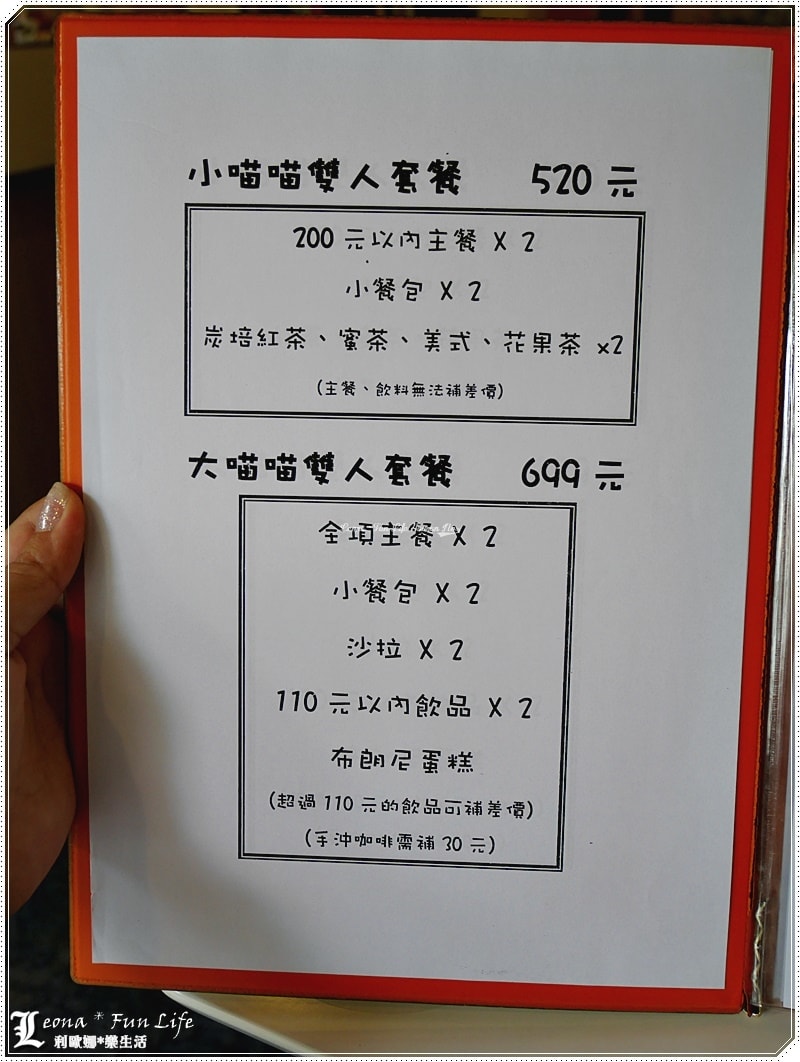 小喵喵雙人套餐 520 元
200 元以內主餐 X 2
小餐包 X 2
炭培紅茶、蜜茶、美式、花果茶 x2
(主餐、飲料無法補差價)
大喵喵雙人套餐 699 元
全項主餐 X 2
小餐包 X 2
沙拉 X 2
110 元以內飲品 X 2
布朗尼蛋糕
(超過 110 元的飲品可補差價)
(手沖咖啡需補 30 元)
Leona * Fun Life
利歐娜*樂生活